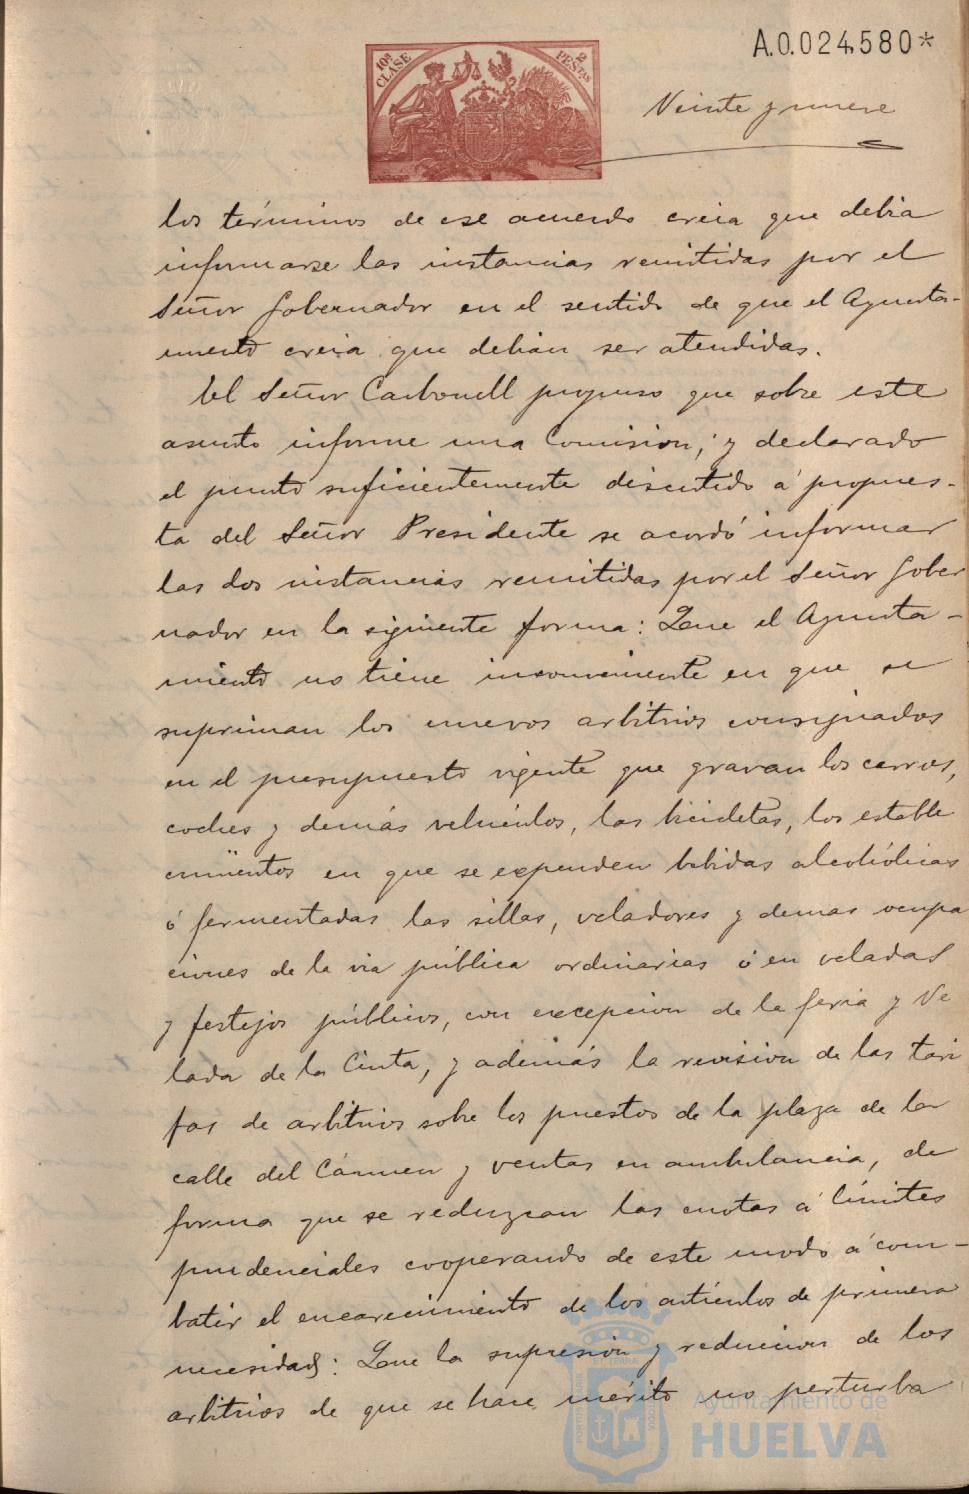 A.0.024,580*
10ª CLASE
2 PESTAS
Veinte y nueve
los términos de ese acuerdo creia que debia
informarse las instancias remitidas por el
Señor Gobernador en el sentido de que el Ayunta-
miento creia que debian ser atendidas.
El Señor Carbonell propuso que sobre este
asunto informe una Comision; y declarado
el punto suficientemente discutido á propues-
ta del Señor Presidente se acordó informar
las dos instancias remitidas por el Señor Gober
nador en la siguiente forma: Que el Ayunta-
miento no tiene inconveniente en que se
supriman los nuevos arbitrios consignados
en el presupuesto vigente que gravan los carros,
coches y demás vehículos, las bicicletas, los estable
cimientos en que se expenden bebidas alcohólicas
ó fermentadas las sillas, veladores y demas ocupa
ciones de la via pública ordinarias ó en veladas
y festejos públicos, con excepcion de la feria y Ve
lada de la Cinta, y además la revision de las tari
fas de arbitrios sobre los puestos de la plaza de la
calle del Cármen y ventas en ambulancia, de
forma que se reduzcan las cuotas á límites
prudenciales cooperando de este modo á com-
batir el encarecimiento de los artículos de primera
necesidad: Que la supresión y reduccion de los
arbitrios de que se hace mérito no perturba
Ayuntamiento de
HUELVA